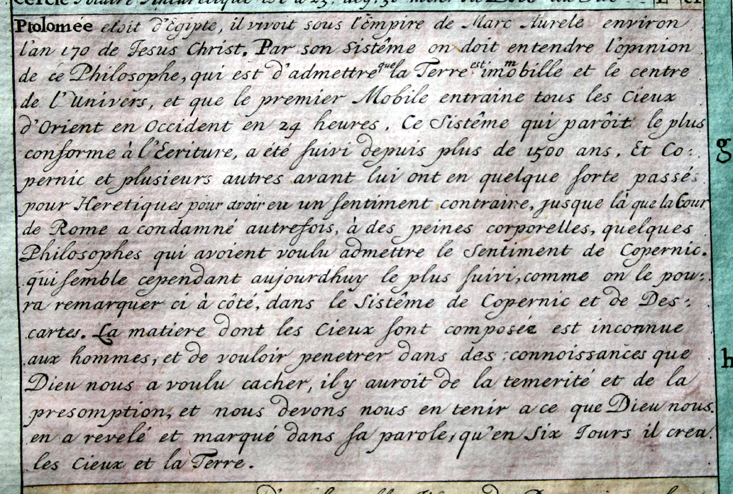 Ptolomée etoit d'Egipte, il vivoit sous l'empire de Marc Aurele environ
l'an 170 de Jesus Christ. Par son Sistême on doit entendre l'opinion
de ce Philosophe, qui est d'admettre que la Terre est immobille et le centre
de l'Univers, et que le premier Mobile entraine tous les Cieux
d'Orient en Occident en 24 heures. Ce Sistême qui parôit le plus
conforme à l'Ecriture, a été suivi depuis plus de 1500 ans. Et Co-
pernic et plusieurs autres avant lui ont en quelque sorte passés
pour Heretiques pour avoir eu un sentiment contraire, jusque là que la Cour
de Rome a condamné autrefois, à des peines corporelles, quelques
Philosophes qui avoient voulu admettre le Sentiment de Copernic.
qui semble cependant aujourdhuy le plus suivi, comme on le pou-
ra remarquer ci à côté, dans le Sistême de Copernic et de Des-
cartes. La matiere dont les Cieux sont composée est inconnue
aux hommes, et de vouloir penetrer dans des connoissances que
Dieu nous a voulu cacher, il y auroit de la temerité et de la
presomption, et nous devons nous en tenir a ce que Dieu nous
en a revelé et marqué dans sa parole, qu'en Six Jours il crea
les Cieux et la Terre.
g
h